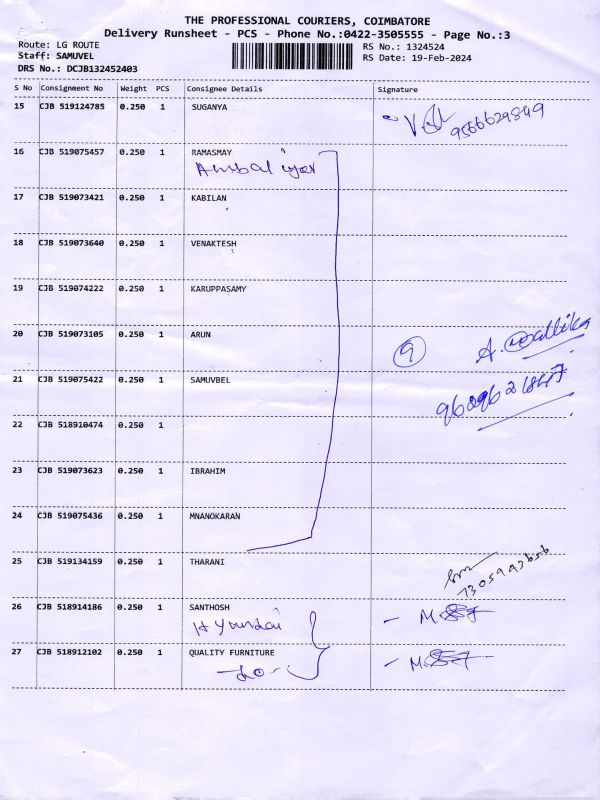 THE PROFESSIONAL COURIERS, COIMBATORE
Delivery Runsheet - PCS - Phone No.:0422-3505555 - Page No.:3
Route: LG ROUTE
RS No.: 1324524
Staff: SAMUVEL
RS Date: 19-Feb-2024
DRS No.: DCJB132452403
S No Consignment No Weight PCS Consignee Details Signature
15 CJB 519124785 0.250 1 SUGANYA
9566629849
16 CJB 519075457 0.250 1 RAMASMAY
17 CJB 519073421 0.250 1 KABILAN
18 CJB 519073640 0.250 1 VENAKTESH
19 CJB 519074222 0.250 1 KARUPPASAMY
20 CJB 519073105 0.250 1 ARUN
9
21 CJB 519075422 0.250 1 SAMUVBEL
22 CJB 518910474 0.250 1
23 CJB 519073623 0.250 1 IBRAHIM
24 CJB 519075436 0.250 1 MNANOKARAN
25 CJB 519134159 0.250 1 THARANI
26 CJB 518914186 0.250 1 SANTHOSH
Hyundai
27 CJB 518912102 0.250 1 QUALITY FURNITURE